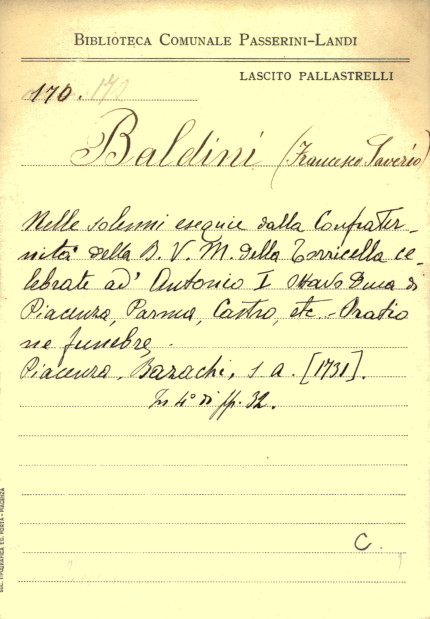 BIBLIOTECA COMUNALE PASSERINI-LANDI
LASCITO PALLASTRELLI
170. 170
Baldini (Francesco Saverio)
Nelle solenni esequie dalla Confrater-
nità della B. V. M. della Torricella ce-
lebrate ad' Antonio I ottavo Duca di
Piacenza, Parma, Castro, etc. - Oratio
ne funebre.
Piacenza, Bazachi, s a. [1731].
In 4° di pp. 32.
C.
SOC. TIPOGRAFICA ED. PORTA - PIACENZA